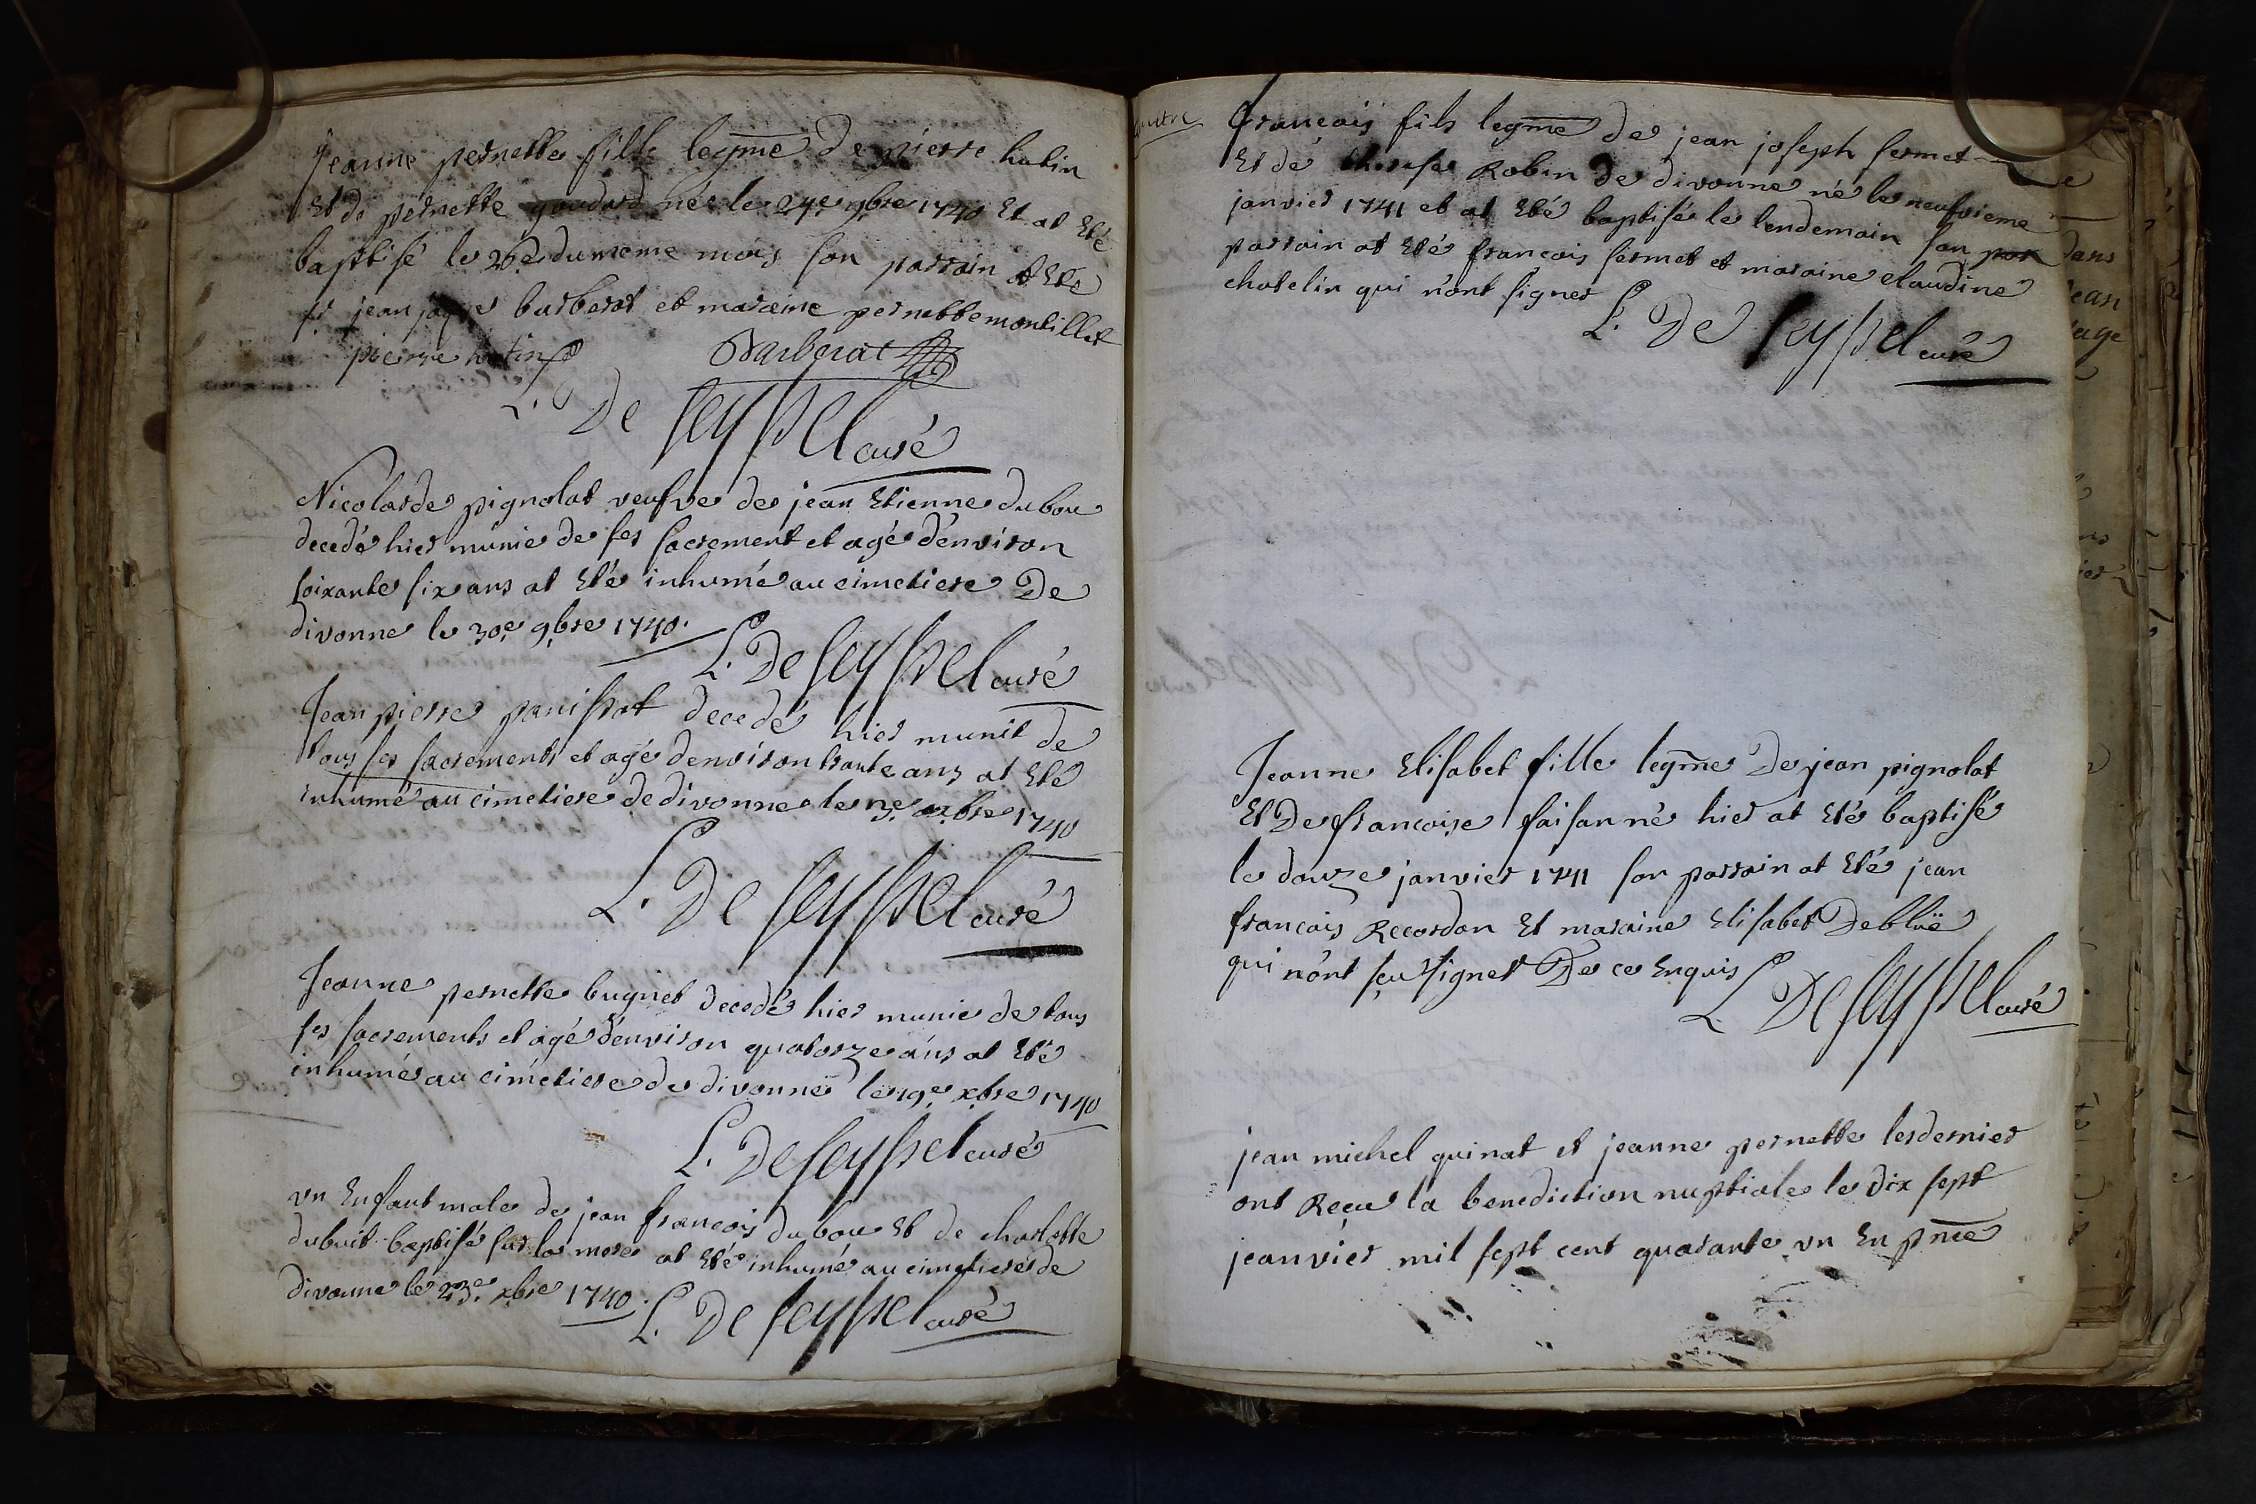 Jeanne pernette fille legme de pierre hutin
Et de pernette goudard née le 24e 9bre 1740 Et at Eté
baptisé le 26e du meme mois son parrain at Eté
sr jean jaque barberat et maraine pernette montillet
pierre hutin Barberat
L. De seyssel curé
Nicolarde pignolat veufve de jean Etienne dubou
decedé hier munie de ses sacrement et agé d'environ
soixante six ans at Eté inhumé au cimetiere De
divonne le 30e 9bre 1740.
L. De seyssel curé
Jean pierre panissat decedé hier munit de
tous ses sacrements et agé d'environ trante ans at Eté
inhumé au cimetiere de divonne le xbre 1740
L. De seyssel curé
Jeanne pernette bugnet decedé hier munie de tous
ses sacrements et agé d'environ quatorze ans at Eté
inhumé au cimetiere de divonne le 19e xbre 1740
L. De seyssel curé
un Enfant male de jean francois dubou Et de charlotte
dubuit baptisé sur la mere at Eté inhumé au cimetiere de
divonne le 23e xbre 1740.
L. De seyssel curé
francois fils legme de jean joseph fermet
Et de therese Robin de divonne né le neufvieme
janvier 1741 et at Eté baptisé le lendemain son par
parrain at Eté francois fermet et maraine claudine
chatelin qui n'ont signer
L. De seyssel curé
Jeanne Elisabet fille legme De jean pignolat
Et De francoise faisan né hier at Eté baptisé
le douze janvier 1741 son parrain at Eté jean
francois Recordon Et maraine Elisabet Deblüe
qui n'ont sçu signer De ce Enquis
L. De seyssel curé
jean michel quinat et jeanne pernette lesdernier
ont Reçu la benediction nuptiale le dix sept
jeanvier mil sept cent quarante un En pnce